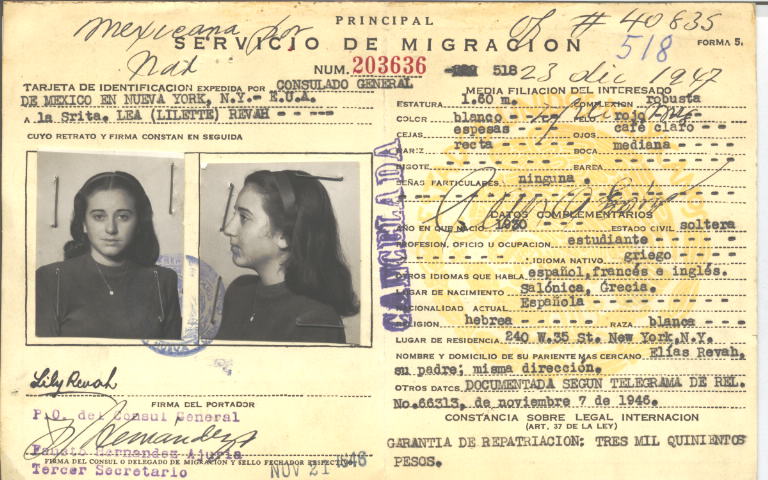 PRINCIPAL
mexicana por
Nat
of # 40835
SERVICIO DE MIGRACION
518
FORMA 5.
NUM. 203636
518
23 dic 1947
TARJETA DE IDENTIFICACION EXPEDIDA POR CONSULADO GENERAL
DE MEXICO EN NUEVA YORK, N.Y.- E.U.A.
A la Srita. LEA (LILETTE) REVAH - - - - -
CUYO RETRATO Y FIRMA CONSTAN EN SEGUIDA
Lily Revah
FIRMA DEL PORTADOR
P.O. del Consul General
Hernández
Fausto Hernandez Ajuria
FIRMA DEL CONSUL O DELEGADO DE MIGRACION Y SELLO FECHADOR RESPECTIVO.
Tercer Secretario
NOV 21 1946
CANCELADA
MEDIA FILIACION DEL INTERESADO
ESTATURA 1.60 m. COMPLEXION robusta
COLOR blanco - - PELO rojo
CEJAS espesas - - OJOS café claro - -
NARIZ recta - - - BOCA mediana - - -
BIGOTE - - - BARBA - - -
SEÑAS PARTICULARES ninguna - - -
DATOS COMPLEMENTARIOS
AÑO EN QUE NACIO 1930 ESTADO CIVIL soltera
PROFESION, OFICIO U OCUPACION estudiante - - - - -
IDIOMA NATIVO griego - - -
OTROS IDIOMAS QUE HABLA español, francés e inglés.
LUGAR DE NACIMIENTO Salónica, Grecia.
NACIONALIDAD ACTUAL Española - - -
RELIGION hebrea - - - - - RAZA blanca - - - -
LUGAR DE RESIDENCIA 240 W.35 St. New York,N.Y.
NOMBRE Y DOMICILIO DE SU PARIENTE MAS CERCANO Elías Revah,
su padre; misma dirección.
OTROS DATOS DOCUMENTADA SEGUN TELEGRAMA DE REL.
No.66313, de noviembre 7 de 1946.
CONSTANCIA SOBRE LEGAL INTERNACION
(ART. 37 DE LA LEY)
GARANTIA DE REPATRIACION: TRES MIL QUINIENTOS
PESOS.